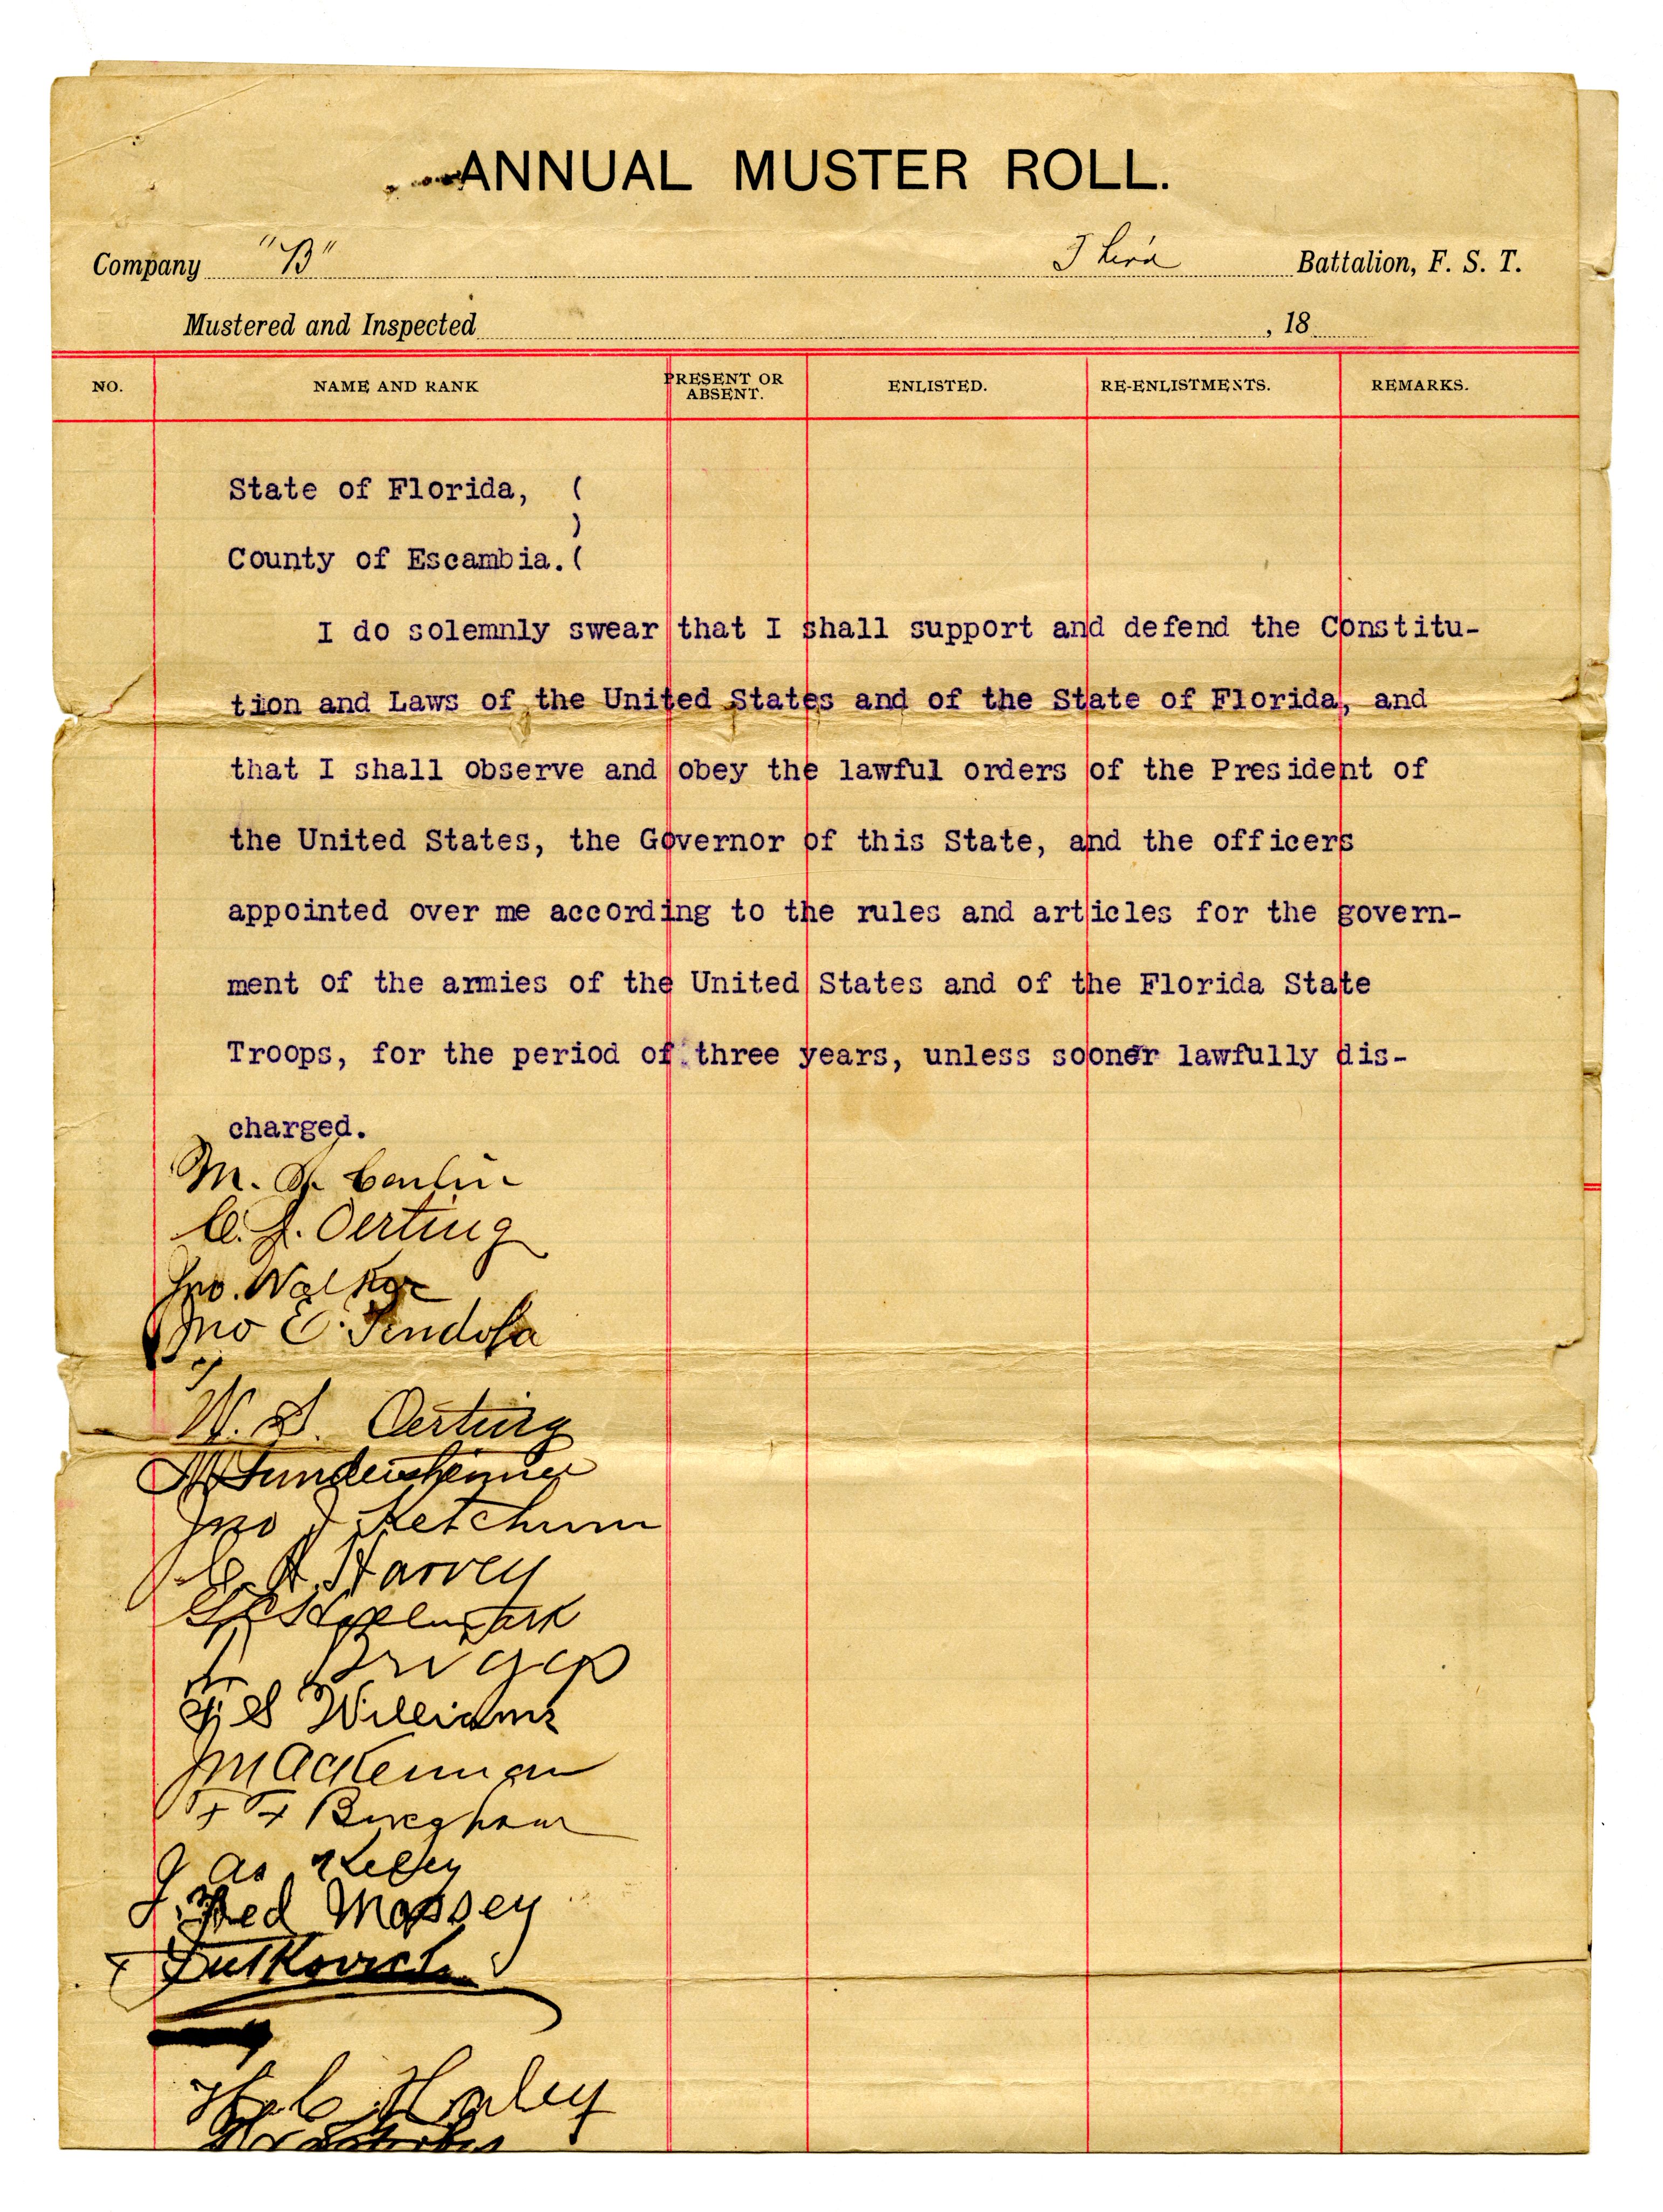 ANNUAL MUSTER ROLL.
Company "B" Third Battalion, F. S. T.
Mustered and Inspected , 18
NO. NAME AND RANK PRESENT OR ABSENT. ENLISTED. RE-ENLISTMENTS. REMARKS.
State of Florida, (
)
County of Escambia. (
I do solemnly swear that I shall support and defend the Constitu-
tion and Laws of the United States and of the State of Florida, and
that I shall observe and obey the lawful orders of the President of
the United States, the Governor of this State, and the officers
appointed over me according to the rules and articles for the govern-
ment of the armies of the United States and of the Florida State
Troops, for the period of three years, unless sooner lawfully dis-
charged.
M.
Oerting
Jno. Walker
Jno E.
W. S. Oerting
Jno J Ketchum
Harvey
S Williams
F F Bingham
Jas Kelley
Fred Massey